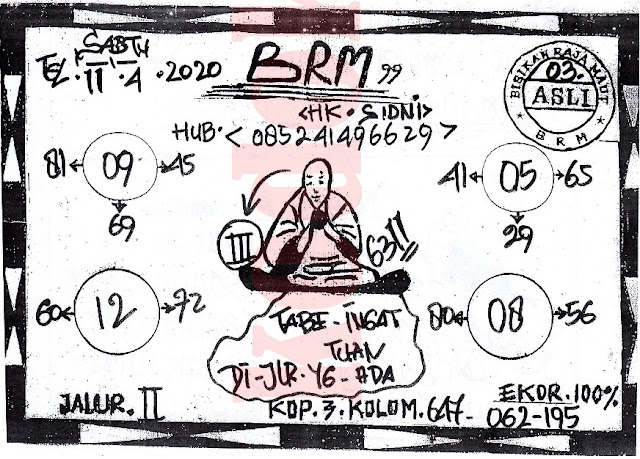 SABTU
TGL. 11. 4. 2020
BRM 99
<HK. SIDNI>
HUB. <085241496629>
BISIKAN RAJA MAUT
03.
ASLI
BRM
81 09 45
69
41 05 65
29
III
63!!
60 12 72
80 08 56
TABE-INGAT
TUAN
DI-JLR. YG-ADA
JALUR. II
KOP. 3. KOLOM. 647-
EKOR. 100%
062-195